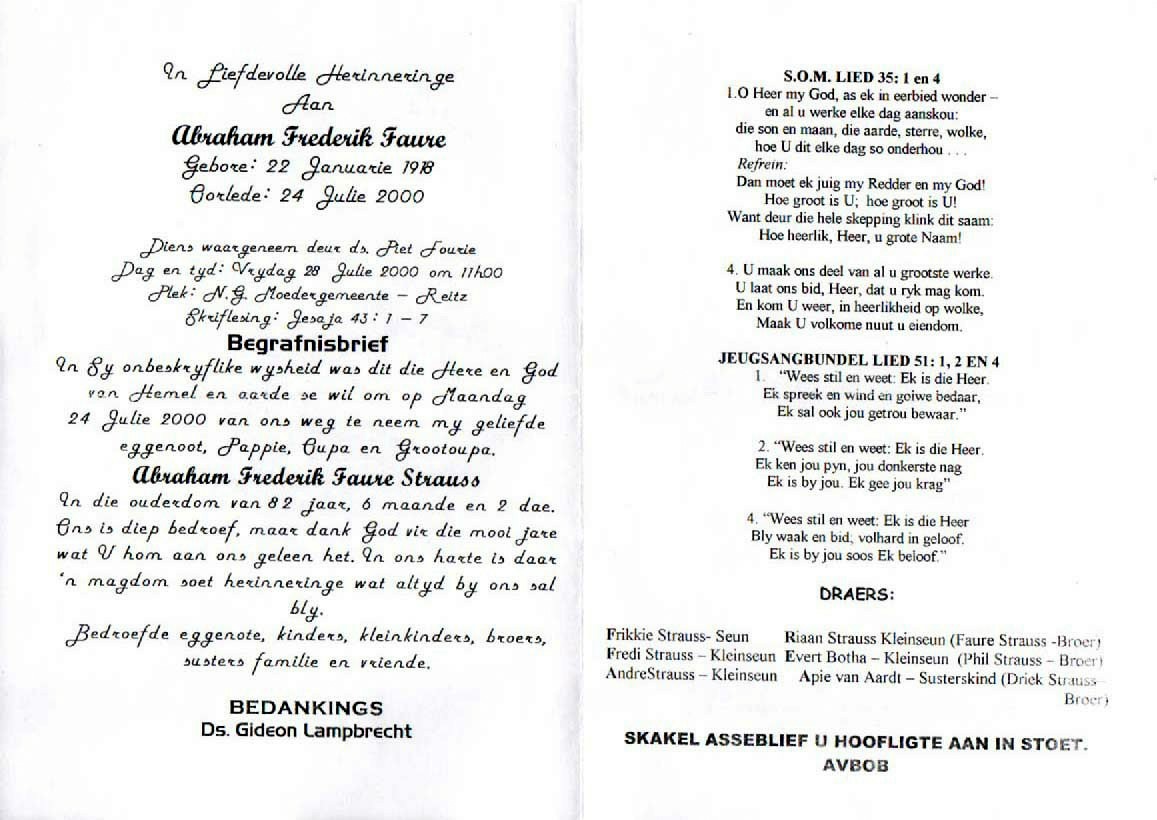 In Liefdevolle Herinneringe
Aan
Abraham Frederik Faure
Gebore: 22 Januarie 1918
Oorlede: 24 Julie 2000
Diens waargeneem deur ds. Piet Fourie
Dag en tyd: Vrydag 28 Julie 2000 om 11h00
Plek: N.G. Moedergemeente – Reitz
Skriflesing: Jesaja 43: 1 – 7
Begrafnisbrief
In Sy onbeskryflike wysheid was dit die Here en God
van Hemel en aarde se wil om op Maandag
24 Julie 2000 van ons weg te neem my geliefde
eggenoot, Pappie, Oupa en Grootoupa.
Abraham Frederik Faure Strauss
In die ouderdom van 82 jaar, 6 maande en 2 dae.
Ons is diep bedroef, maar dank God vir die mooi jare
wat U hom aan ons geleen het. In ons harte is daar
'n magdom soet herinneringe wat altyd by ons sal
bly.
Bedroefde eggenote, kinders, kleinkinders, broers,
susters familie en vriende.
BEDANKINGS
Ds. Gideon Lampbrecht
S.O.M. LIED 35: 1 en 4
1.O Heer my God, as ek in eerbied wonder –
en al u werke elke dag aanskou:
die son en maan, die aarde, sterre, wolke,
hoe U dit elke dag so onderhou . . .
Refrein:
Dan moet ek juig my Redder en my God!
Hoe groot is U; hoe groot is U!
Want deur die hele skepping klink dit saam:
Hoe heerlik, Heer, u grote Naam!
4. U maak ons deel van al u grootste werke.
U laat ons bid, Heer, dat u ryk mag kom.
En kom U weer, in heerlikheid op wolke,
Maak U volkome nuut u eiendom.
JEUGSANGBUNDEL LIED 51: 1, 2 EN 4
1. "Wees stil en weet: Ek is die Heer.
Ek spreek en wind en goiwe bedaar,
Ek sal ook jou getrou bewaar."
2. "Wees stil en weet: Ek is die Heer.
Ek ken jou pyn, jou donkerste nag
Ek is by jou. Ek gee jou krag"
4. "Wees stil en weet: Ek is die Heer
Bly waak en bid; volhard in geloof.
Ek is by jou soos Ek beloof."
DRAERS:
Frikkie Strauss- Seun Riaan Strauss Kleinseun (Faure Strauss -Broer)
Fredi Strauss – Kleinseun Evert Botha – Kleinseun (Phil Strauss – Broer)
AndreStrauss – Kleinseun Apie van Aardt – Susterskind (Driek Strauss –
Broer)
SKAKEL ASSEBLIEF U HOOFLIGTE AAN IN STOET.
AVBOB